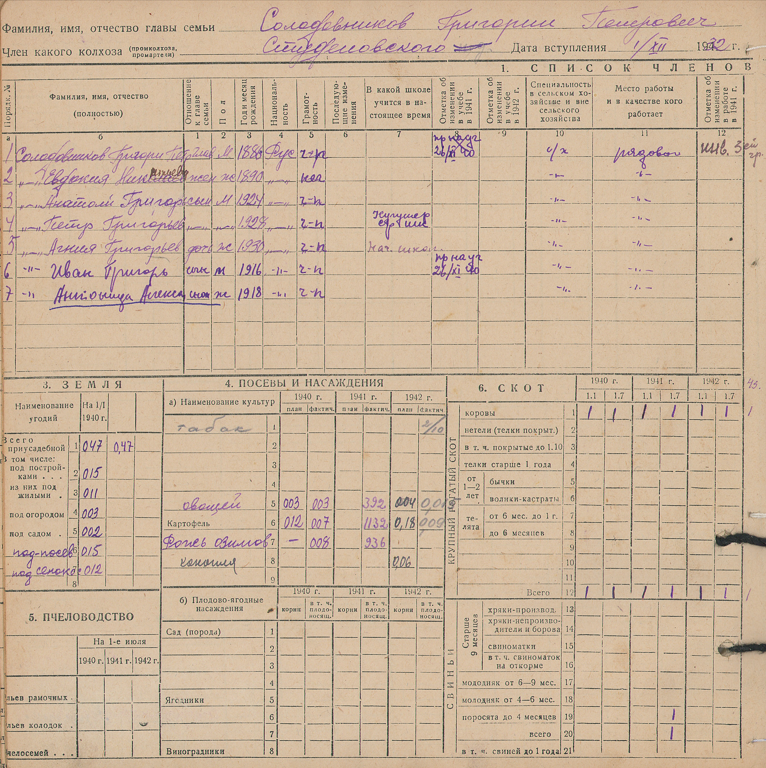 Фамилия, имя, отчество главы семьи Солодовников Григорий Петрович
Член какого колхоза (промколхоза, промартели) Дата вступления 1/XII 1932 г.
1. СПИСОК ЧЛЕНОВ
Порядк. № Фамилия, имя, отчество (полностью) Отношение к главе семьи Пол Год и месяц рождения Националь-ность Грамот-ность Последую-щие изме-нения В какой школе учится в на-стоящее время Отметка об изменении в учебе в 1941 г. Отметка об изменении в учебе в 1942 г. Специальность в сельском хо-зяйстве и вне сельского хозяйства Место работы и в качестве кого работает Отметка об изменении в работе в 1941 г.
а б 1 2 3 4 5 6 7 8 9 10 11 12
1 Солодовников Григори М 1886 Рус г-р 26/XI 40 с/х рядовой инв. 3 ей гр.
2 -„- Евдокия жена ж 1890 -„- нег -„- -„-
3 -„- Анатолий Григор сын М 1924 -„- г-р -„- -„-
4 -„- Петр Григорьев -„- 1928 -„- г-р -„- -„-
5 -„- Агния Григорьев дочь ж 1930 -„- г-р Нач. школ -„- -„-
6 -„- Иван Григорь сын м 1916 -„- г-р 26/XI 40 -„- -„-
7 -„- Антонида Алекса ж 1918 -„- г-р -„- -„-
3. ЗЕМЛЯ
Наименование угодий На 1/I 1940 г.
Всего приусадебной 1 047 0,47
В том числе:
под построй-ками 2 015
из них под жилыми 3 011
под огородом 4 003
под садом 5 002
под-посев 6 015
под сенокос 012
8
5. ПЧЕЛОВОДСТВО
На 1-е июля
1940 г. 1941 г. 1942 г.
льев рамочных
льев колодок
челосемей
4. ПОСЕВЫ И НАСАЖДЕНИЯ
а) Наименование культур 1940 г. 1941 г. 1942 г.
план фактич. план фактич. план фактич.
табак 1 2/10
2
3
4
овощей 5 003 003 392 004
Картофель 6 012 007 1132 0,18 009
Рожь озимов 7 — 008 936
конопля 8 0,06
9
б) Плодово-ягодные насаждения 1940 г. 1941 г. 1942 г.
корни в т. ч. плодо-носящ. корни в т. ч. плодо-носящ. корни в т. ч. плодо-носящ.
Сад (порода) 1
2
3
4
Ягодники 5
6
7
Виноградники 8
6. СКОТ
1940 г. 1941 г. 1942 г.
1.1 1.7 1.1 1.7 1.1 1.7 43.
КРУПНЫЙ РОГАТЫЙ СКОТ
коровы 1 1 1 1 1 1 1 1
нетели (телки покрыт.) 2
в т. ч. покрытые до 1.10 3
телки старше 1 года 4
от 1—2 лет бычки 5
волики-кастраты 6
те-лята от 6 мес. до 1 г. 7
до 6 месяцев 8
9
10
11
Всего 12 1 1 1 1 1 1 1
СВИНЬИ
Старше 9 месяцев хряки-производ. 13
хряки-непроизво-дители и борова 14
свиноматки 15
в т. ч. свиноматок на откорме 16
молодняк от 6—9 мес. 17
молодняк от 4—6 мес. 18
поросята до 4 месяцев 19 1
всего 20 1
в т. ч. свиней до 1 года 21